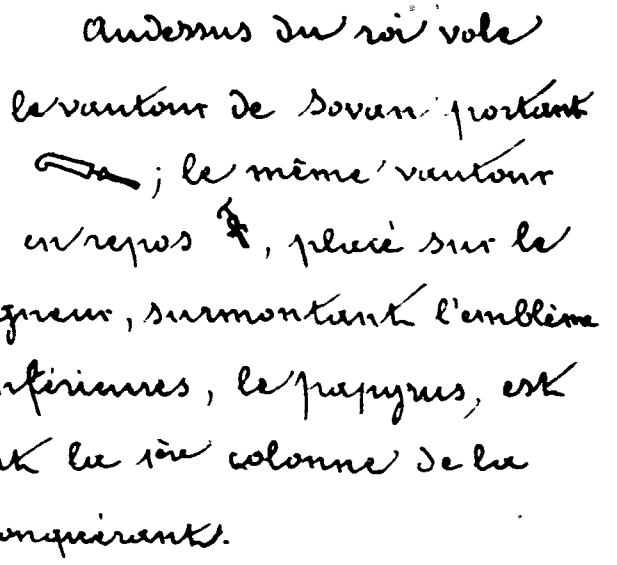 Audessus du roi vole
le vautour de Sovan portant
; le même vautour
en repos , placé sur le
gneur, surmontant l'emblème
nférieures, le papyrus, est
nt la 1ère colonne de la
onquérant.